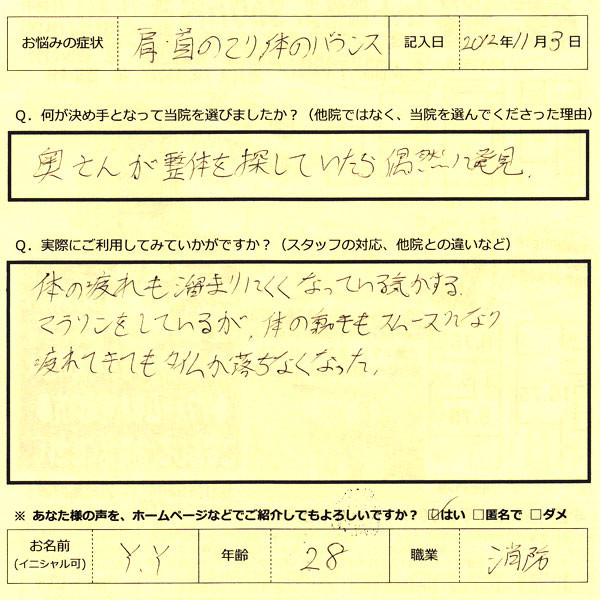 お悩みの症状 肩・首のこり,体のバランス 記入日 2012年11月3日
Q．何が決め手となって当院を選びましたか？（他院ではなく、当院を選んでくださった理由）
奥さんが整体を探していたら偶然に発見.
Q．実際にご利用してみていかがですか？（スタッフの対応、他院との違いなど）
体の疲れも溜まりにくくなっている気がする.
マラソンをしているが,体の動きもスムーズになり
疲れてきてもタイムが落ちなくなった.
※ あなた様の声を、ホームページなどでご紹介してもよろしいですか？ ☑はい □匿名で □ダメ
お名前 (イニシャル可) Y.Y 年齢 28 職業 消防